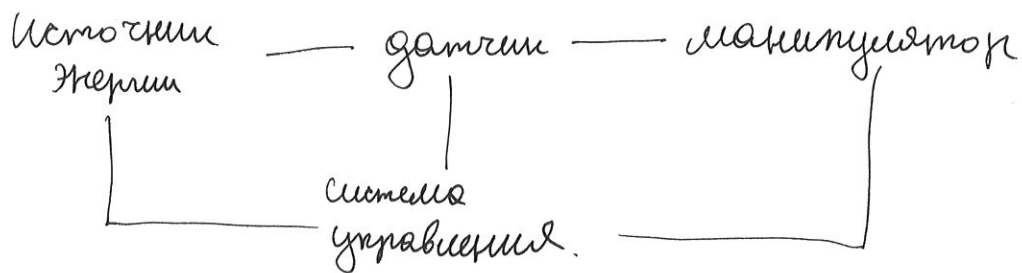 Источник
энергии
датчик
манипулятор
система
управления.